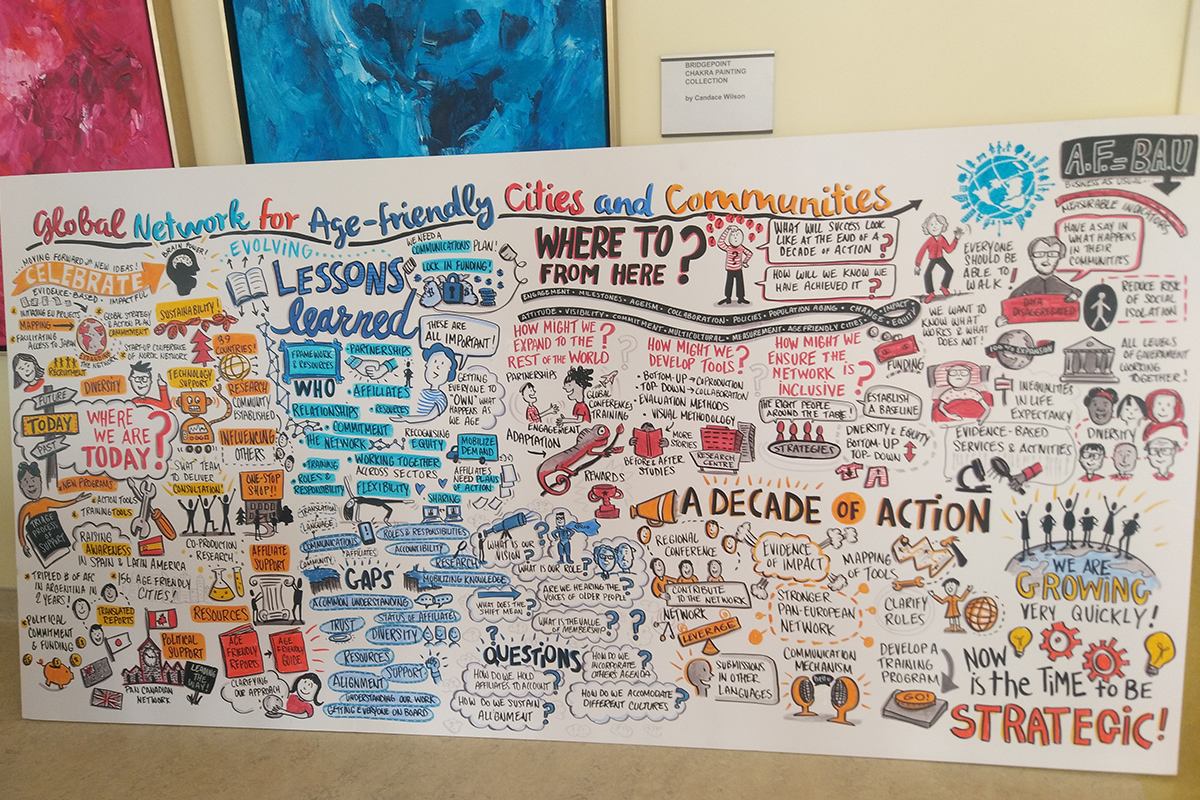 BRIDGEPOINT
CHAKRA PAINTING
COLLECTION
by Candace Wilson
Global Network for Age-friendly Cities and Communities
MOVING FORWARD NEW IDEAS!
BRAIN POWER!
CELEBRATE
EVIDENCE-BASED · IMPACTFUL
INITIATING EU PROJECTS
MAPPING
FACILITATING
ACCESS TO JAPAN
GLOBAL
STRATEGY
& ACTION PLAN
COMMITMENT
SUSTAINABILITY!
EXPANDING
THE NETWORK
START-UP CONFERENCE
OF NORDIC NETWORK
39
COUNTRIES!
RECRUITMENT
DIVERSITY
TECHNOLOGY
SUPPORT
RESEARCH
COMMUNITY
ESTABLISHED
FUTURE
TODAY
PAST
WHERE
WE ARE
TODAY?
INFLUENCING
OTHERS
SWAT TEAM
TO DELIVER
CONSULTATION!
ONE-STOP
SHOP!!
NEW PROGRAMS
ACTION TOOLS
TRAINING TOOLS
RAISING
AWARENESS
IN SPAIN & LATIN AMERICA
CO-PRODUCTION
RESEARCH
AFFILIATE
SUPPORT
TRIPLED # OF AFC
IN ARGENTINA IN
2 YEARS!
156 AGE FRIENDLY
CITIES!
TRANSLATED
REPORTS
RESOURCES
POLITICAL
COMMITMENT
& FUNDING
POLITICAL
SUPPORT
AGE
FRIENDLY
REPORTS
AGE
FRIENDLY
GUIDE
LEADING
THE WAY!
PAN CANADIAN
NETWORK
CLARIFYING
OUR APPROACH
EVOLVING
LESSONS
learned
WE NEED A
COMMUNICATIONS PLAN!
LOCK IN FUNDING!
THESE ARE
ALL IMPORTANT!
FRAMEWORK
& RESOURCES
PARTNERSHIPS
WHO
AFFILIATES
RELATIONSHIPS
RESOURCES
GETTING
EVERYONE TO
"OWN" WHAT
HAPPENS AS
WE AGE
COMMITMENT
THE NETWORK
RECOGNISING
EQUITY
MOBILIZE
DEMAND
WORKING TOGETHER
ACROSS SECTORS
TRAINING
ROLES &
RESPONSIBILITY
FLEXIBILITY
AFFILIATES
NEED PLANS
OF ACTION
SHARING
TRANSLATION
LANGUAGE
COMMUNICATIONS
COMMUNITY
AFFILIATES
ROLES & RESPONSIBILITIES
ACCOUNTABILITY
RESEARCH
GAPS
MOBILIZING KNOWLEDGE
A COMMON UNDERSTANDING
STATUS OF AFFILIATES
TRUST
DIVERSITY
RESOURCES
SUPPORT
ALIGNMENT
UNDERSTANDING OUR WORK
GETTING EVERYONE ON BOARD
WHAT IS OUR
VISION?
WHAT IS OUR ROLE?
ARE WE HEARING THE
VOICES OF OLDER PEOPLE?
WHAT DOES THE
SHIFT MEAN?
WHAT IS THE VALUE
OF MEMBERSHIP?
QUESTIONS
HOW DO WE HOLD
AFFILIATES TO ACCOUNT?
HOW DO WE
INCORPORATE
OTHERS AGENDA?
HOW DO WE SUSTAIN
ALIGNMENT?
HOW DO WE ACCOMODATE
DIFFERENT CULTURES?
WHERE TO
FROM HERE?
WHAT WILL SUCCESS LOOK
LIKE AT THE END OF A
DECADE OF ACTION?
HOW WILL WE KNOW WE
HAVE ACHIEVED IT?
ENGAGEMENT · MILESTONES · AGEISM · COLLABORATION · POLICIES · POPULATION AGING · CHANGE · IMPACT
ATTITUDE · VISIBILITY · COMMITMENT · MULTICULTURAL · MEASUREMENT · AGE FRIENDLY CITIES · EQUITY
HOW MIGHT WE
EXPAND TO THE
REST OF THE WORLD?
PARTNERSHIPS
GLOBAL
CONFERENCE/
TRAINING
ENGAGEMENT
ADAPTATION
REWARDS
HOW MIGHT WE
DEVELOP TOOLS?
BOTTOM-UP
TOP-DOWN
CO PRODUCTION
COLLABORATION
EVALUATION METHODS
VISUAL METHODOLOGY
MORE
STORIES
BEFORE & AFTER
STUDIES
RESEARCH
CENTRE
HOW MIGHT WE
ENSURE THE
NETWORK IS
INCLUSIVE?
THE RIGHT PEOPLE
AROUND THE TABLE!
STRATEGIES
ESTABLISH
A BASELINE
FUNDING
DIVERSITY & EQUITY
BOTTOM-UP
TOP-DOWN
A.F.=BAU
BUSINESS AS USUAL
MEASURABLE INDICATORS
EVERYONE
SHOULD BE
ABLE TO
WALK!
HAVE A SAY IN
WHAT HAPPENS
IN THEIR
COMMUNITIES
DATA
DISAGGREGATED
REDUCE RISE
OF SOCIAL
ISOLATION
WE WANT TO
KNOW WHAT
WORKS & WHAT
DOES NOT!
EXPANSION
ALL LEVELS
OF GOVERNMENT
WORKING
TOGETHER!
INEQUALITIES
IN LIFE
EXPECTANCY
EVIDENCE-BASED
SERVICES & ACTIVITIES
DIVERSITY
A DECADE OF ACTION
REGIONAL
CONFERENCE
EVIDENCE
OF IMPACT
MAPPING
OF TOOLS
CONTRIBUTE
TO THE NETWORK
NETWORK
LEVERAGE
STRONGER
PAN-EUROPEAN
NETWORK
CLARIFY
ROLES
SUBMISSIONS
IN OTHER
LANGUAGES
COMMUNICATION
MECHANISM
DEVELOP A
TRAINING
PROGRAM
GO!
WE ARE
GROWING
VERY QUICKLY!
NOW
is the TIME to BE
STRATEGIC!